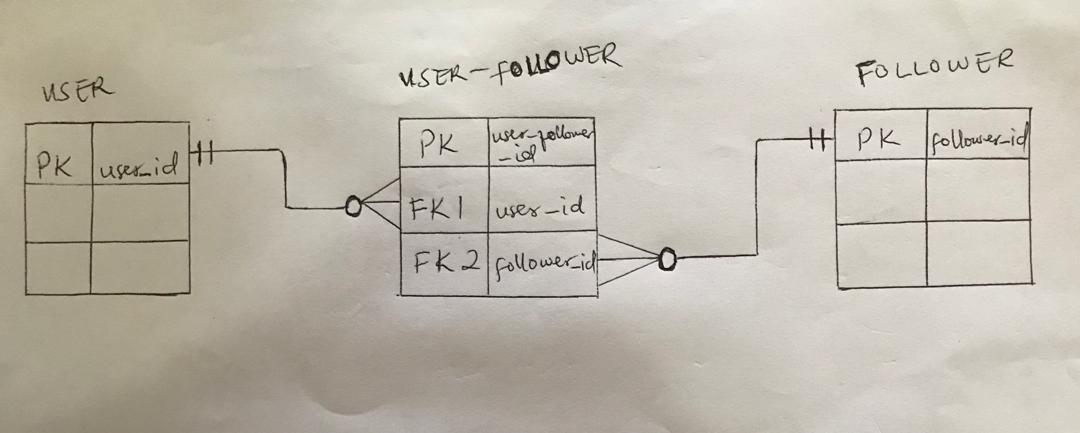 USER
PK user_id
USER-FOLLOWER
PK user_follower
_id
FK1 user_id
FK2 follower_id
FOLLOWER
PK follower_id